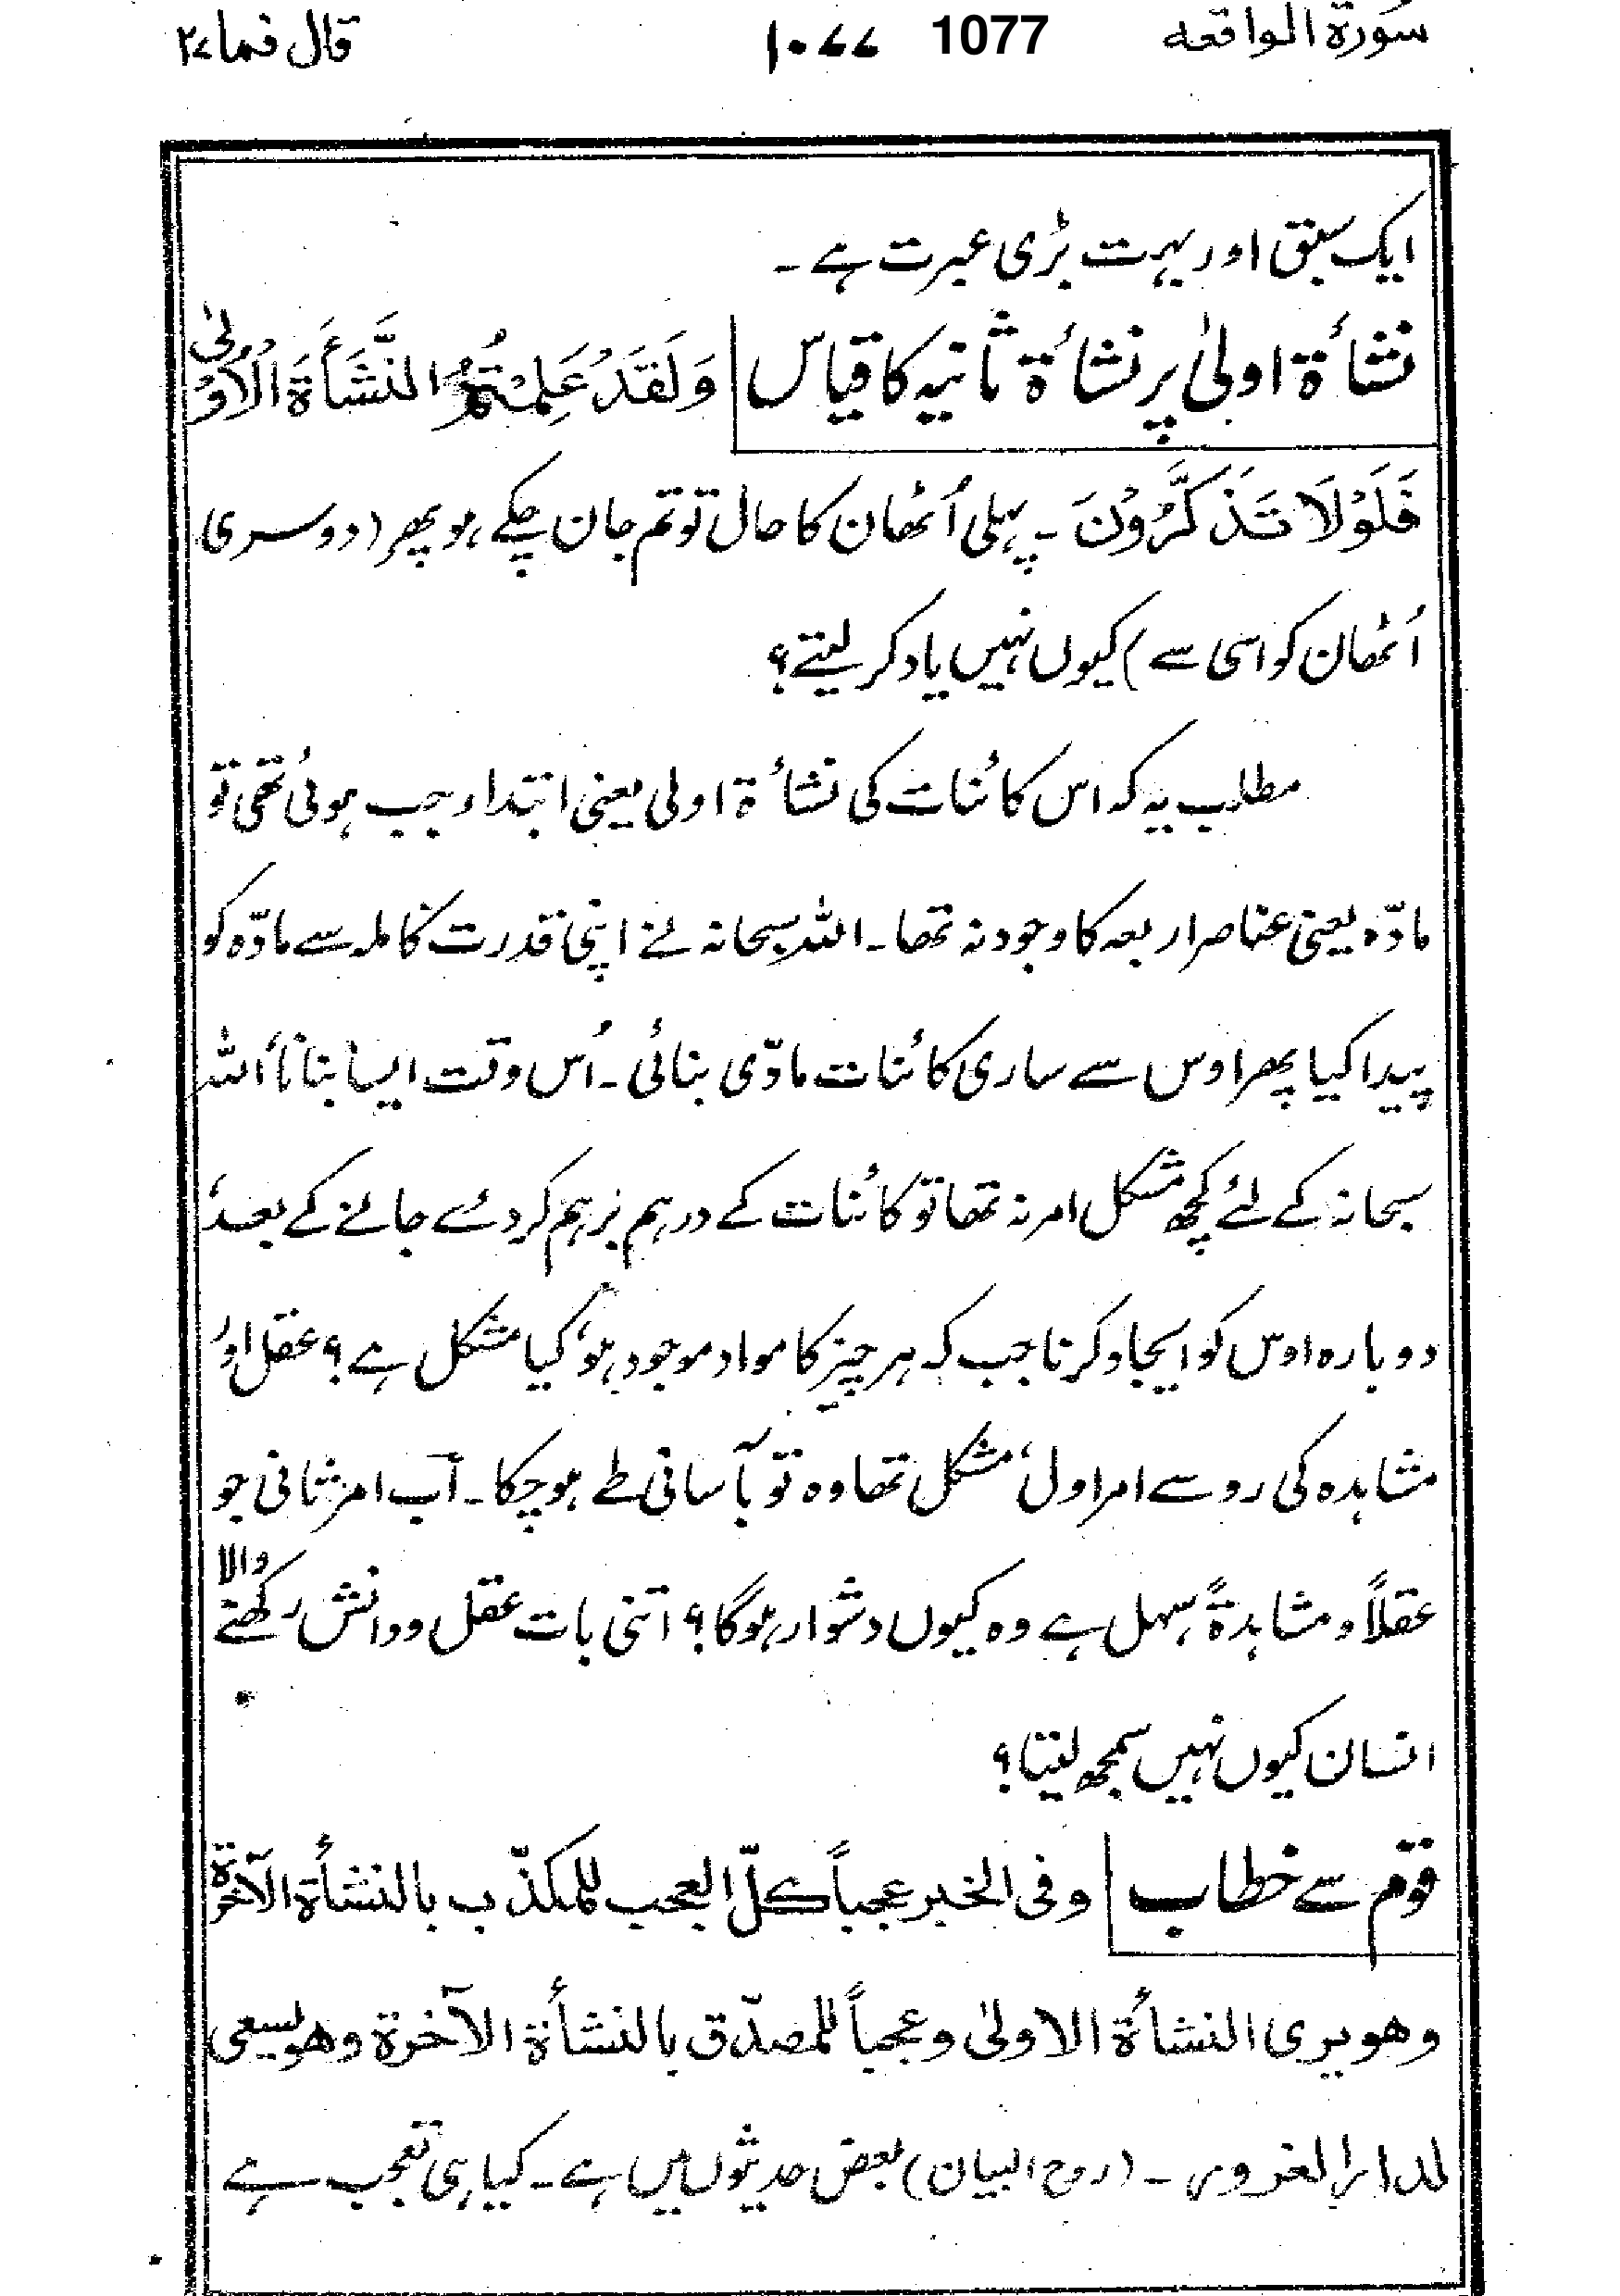 سورة الواقعه 1077 ۱۰۷۷ قال فما ۲۷
ایک سبق اور بہت بڑی عبرت ہے ۔
نشأۃ اولیٰ پر نشأۃ ثانیہ کا قیاس وَلَقَدْ عَلِمْتُمُ النَّشَأَةَ الْاُوْلٰی
فَلَوْلَا تَذَكَّرُوْنَ ۔ پہلی اُٹھان کا حال تو تم جان چکے ہو پھر (دوسری
اُٹھان کو اسی سے) کیوں نہیں یاد کر لیتے؟
مطلب یہ کہ اس کائنات کی نشأۃ اولی یعنی ابتداء جب ہوئی تھی تو
مادّہ یعنی عناصر اربعہ کا وجود نہ تھا ۔ اللہ سبحانہ نے اپنی قدرت کاملہ سے مادّہ کو
پیدا کیا پھر اوس سے ساری کائنات مادّی بنائی ۔ اُس وقت ایسا بنانا اللہ
سبحانہ کے لئے کچھ مشکل امر نہ تھا تو کائنات کے درہم برہم کر دئے جانے کے بعد،
دوبارہ اوس کو ایجاد کرنا جب کہ ہر چیز کا مواد موجود ہو، کیا مشکل ہے؟ عقل اور
مشاہدہ کی رو سے امر اول، مشکل تھا وہ تو بآسانی طے ہو چکا ۔ اب امر ثانی جو
عقلاً و مشاہدۃً سہل ہے وہ کیوں دشوار ہوگا؟ اتنی بات عقل و دانش رکھنے والا
انسان کیوں نہیں سمجھ لیتا؟
قوم سے خطاب وفی الخبر عجباً کلّ العجب للمکذّب بالنشأۃ الآخرۃ
وھو یری النشأۃ الاولیٰ وعجباً للمصدّق بالنشأۃ الآخرۃ وھو یسعی
لدار الغرور ۔ (روح البیان) بعض حدیثوں میں ہے ۔ کیا ہی تعجب ہے